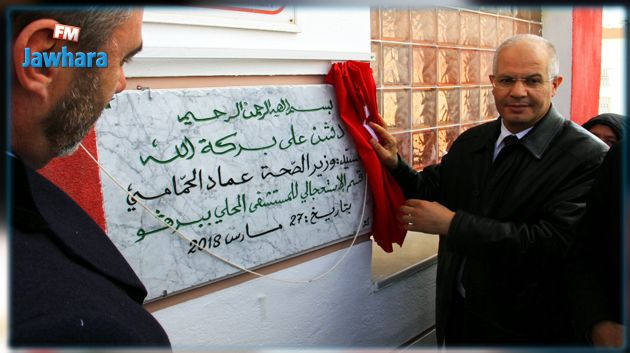 FM
Jawhara
بسم الله الرحمن الرحيم
دشّن على بركة الله
السيد: وزير الصحة عماد الحمّامي
قسم الإستعجالي للمستشفى المحلي ببرقو
بتاريخ: 27 مارس 2018